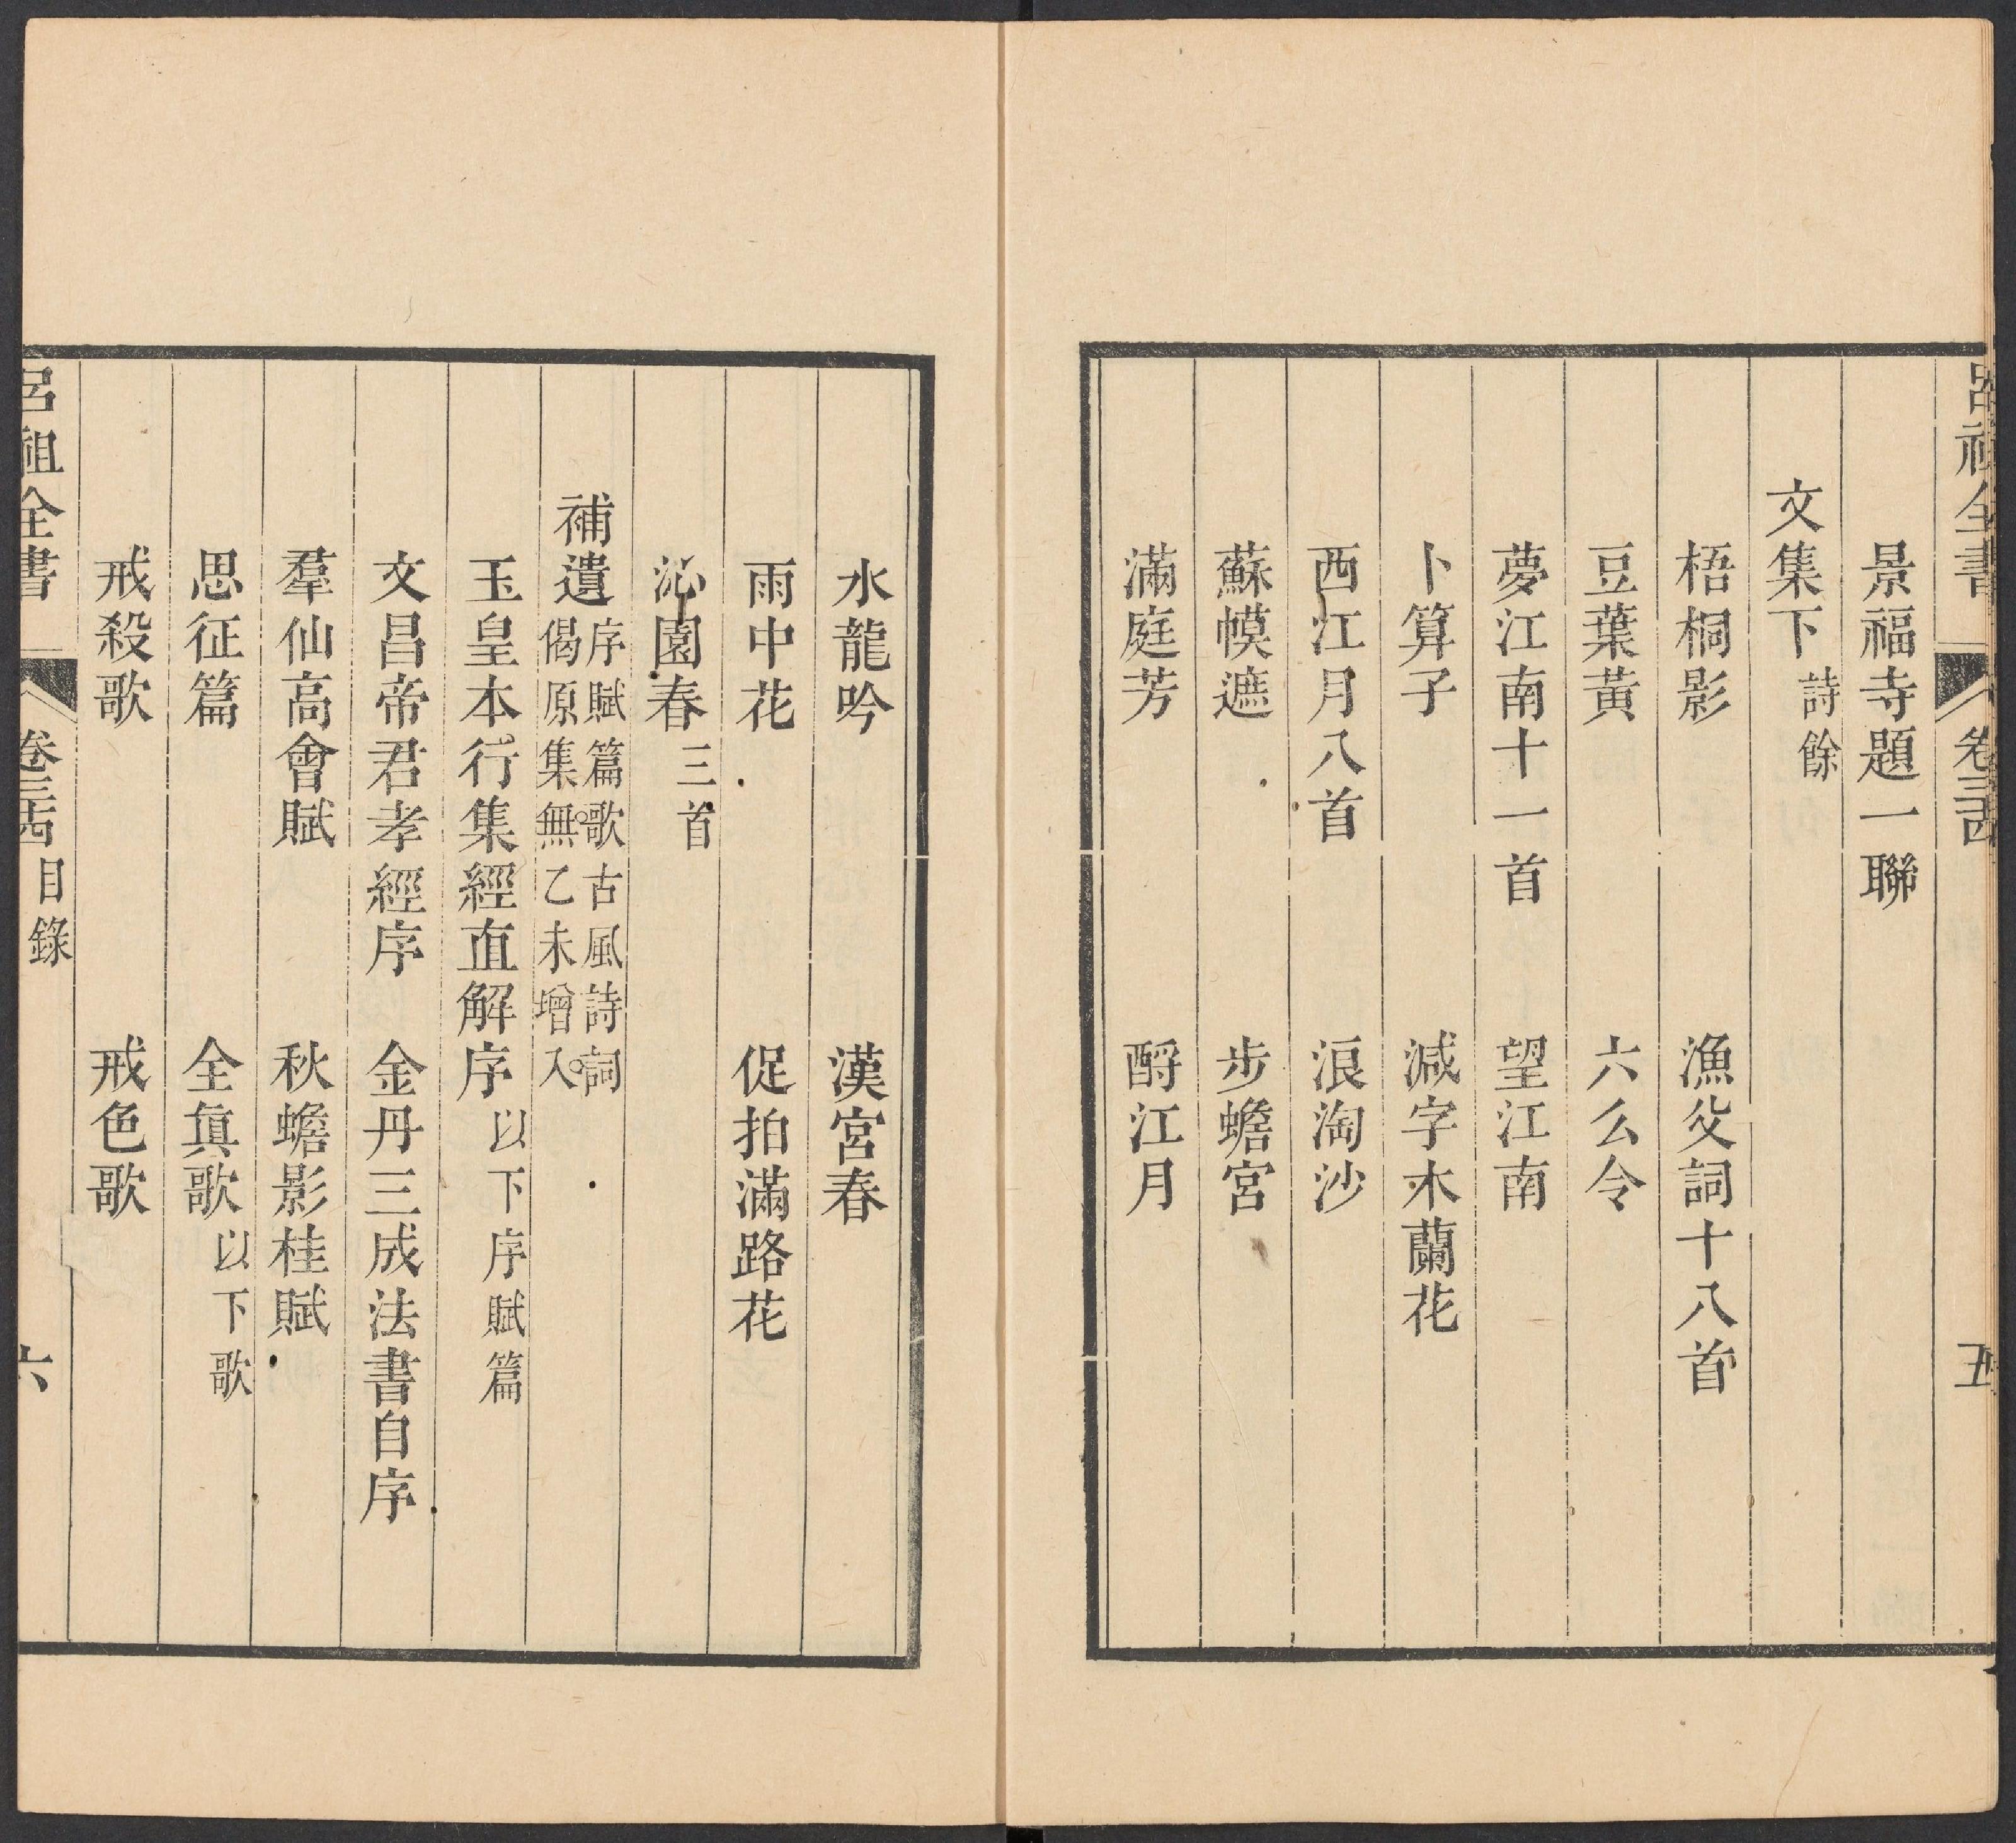 呂祖全書 卷三十四 五
景福寺題一聯
文集下 詩餘
梧桐影 漁父詞十八首
豆葉黃 六么令
夢江南十一首 望江南
卜算子 減字木蘭花
西江月八首 浪淘沙
蘇幙遮 步蟾宮
滿庭芳 酹江月
水龍吟 漢宮春
雨中花 促拍滿路花
沁園春三首
補遺 序賦篇歌古風詩詞
偈原集無乙未增入
玉皇本行集經直解序 以下序賦篇
文昌帝君孝經序 金丹三成法書自序
羣仙高會賦 秋蟾影桂賦
思征篇 全眞歌 以下歌
戒殺歌 戒色歌
呂祖全書 卷三十四 目錄 六